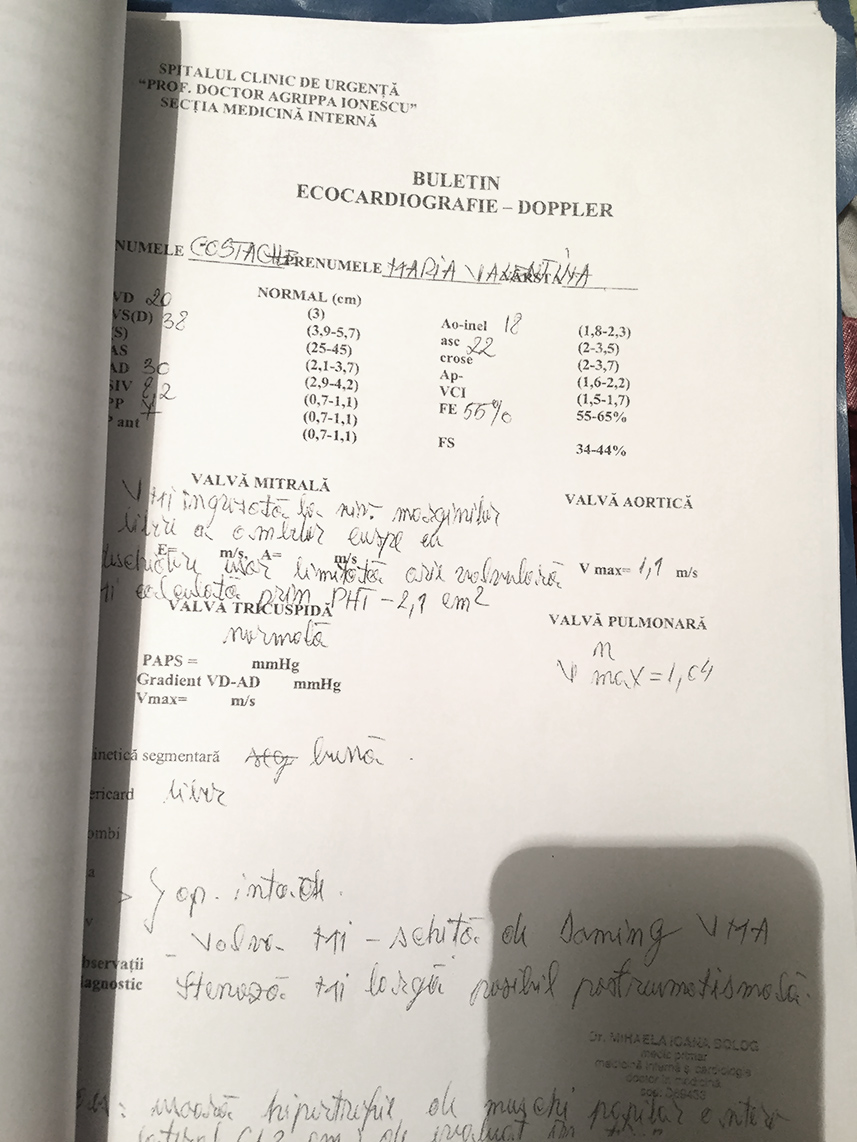 SPITALUL CLINIC DE URGENȚĂ
“PROF. DOCTOR AGRIPPA IONESCU”
SECȚIA MEDICINĂ INTERNĂ
BULETIN
ECOCARDIOGRAFIE – DOPPLER
NUMELE COSTACHE PRENUMELE MARIA VALENTINA VÂRSTA
VD 20 NORMAL (cm)
VS(D) 38 (3) Ao-inel 18 (1,8-2,3)
S) (3,9-5,7) asc 22 (2-3,5)
AS (25-45) crose (2-3,7)
AD 30 (2,1-3,7) Ap- (1,6-2,2)
SIV (2,9-4,2) VCI (1,5-1,7)
PP (0,7-1,1) FE 55% 55-65%
P ant (0,7-1,1)
(0,7-1,1) FS 34-44%
VALVĂ MITRALĂ VALVĂ AORTICĂ
VMi îngroșată la niv. marginilor
libere a ambelor cuspe cu
E= m/s, A= m/s
deschidere ușor limitată arie valvulară V max= 1,1 m/s
Mi calculată prim PHT – 2,1 cm2
VALVĂ TRICUSPIDĂ VALVĂ PULMONARĂ
normală n
PAPS = mmHg V max = 1,04
Gradient VD-AD mmHg
Vmax= m/s
inetică segmentară bună .
ericard liber
ombi
a
> S ap. intacte.
v
- Valva Mi – schiță de doming VMA
bservații
iagnostic Stenoză Mi largă posibil postreumatismală.
Dr. MIHAELA IOANA BOLOG
medic primar
medicină internă și cardiologie
doctor în medicină
ușoară hipertrofie de mușchi papilar antero
lateral de evaluat în